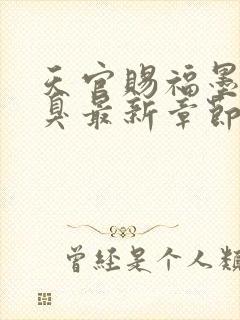 天官赐福墨
臭最新章節
曾经是个人類